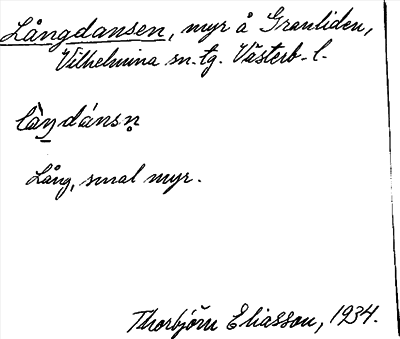 Långdansen, myr å Granliden,
Vilhelmina sn.tg. Västerb. l.
làŋdánsn̥
Lång, smal myr.
Thorbjörn Eliasson, 1934.